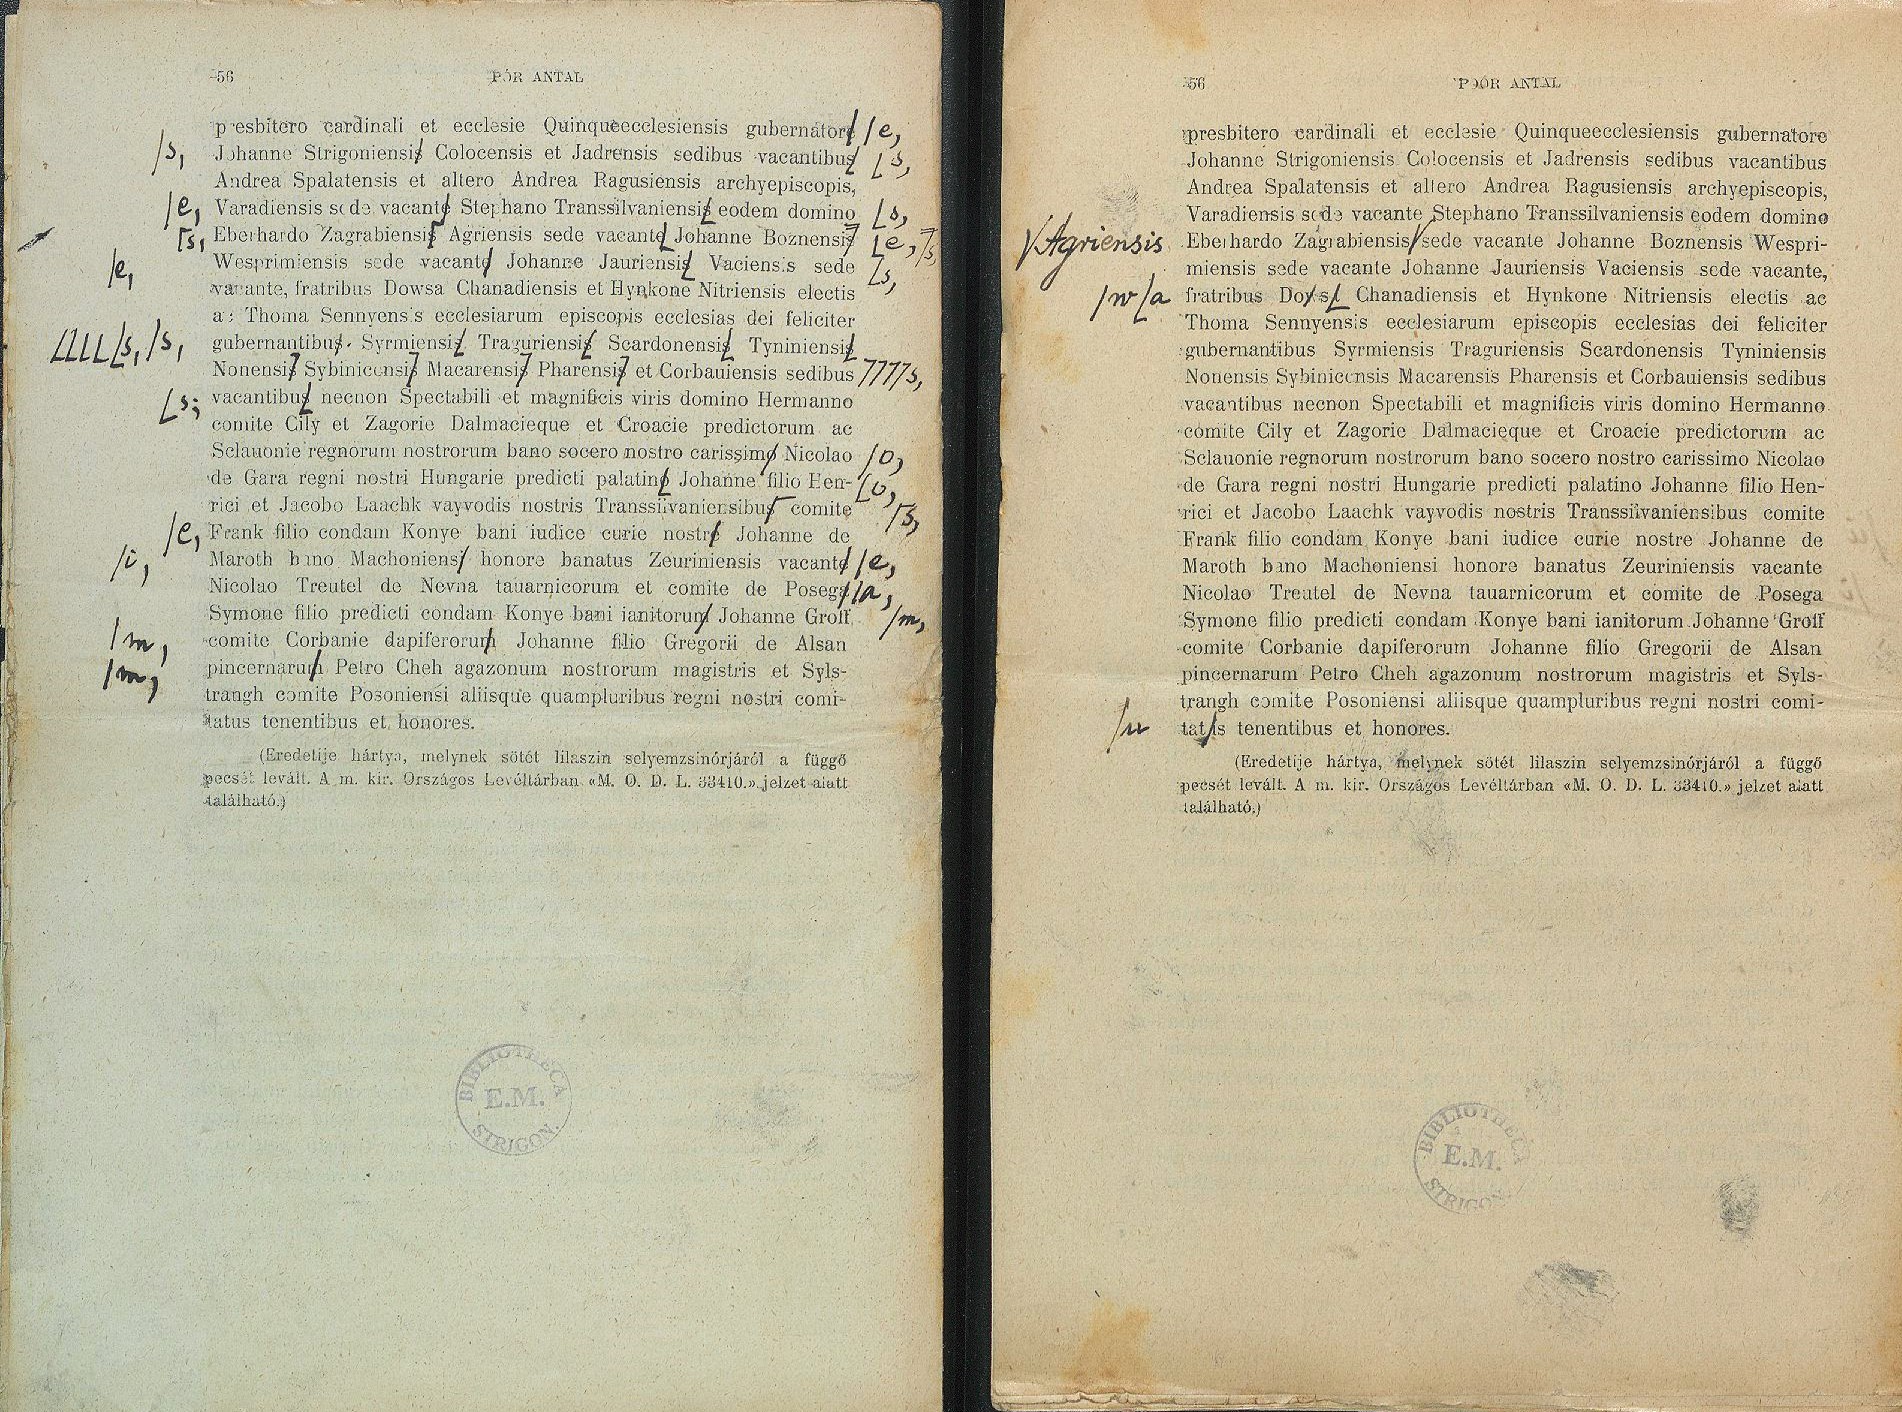 56 PÓR ANTAL
presbitero cardinali et ecclesie Quinqueecclesiensis gubernatore /e,
/s, Johanne Strigoniensis Colocensis et Jadrensis sedibus vacantibus s,
Andrea Spalatensis et altero Andrea Ragusiensis archyepiscopis,
/e, Varadiensis sede vacante Stephano Transsilvaniensis eodem domino s,
s, Eberhardo Zagrabiensis Agriensis sede vacante Johanne Boznensis e, s,
/e, Wesprimiensis sede vacante Johanne Jauriensis Vaciensis sede s,
vacante, fratribus Dowsa Chanadiensis et Hynkone Nitriensis electis
ac Thoma Sennyensis ecclesiarum episcopis ecclesias dei feliciter
s, /s, gubernantibus. Syrmiensis Traguriensis Scardonensis Tyniniensis
Nonensis Sybinicensis Macarensis Pharensis et Corbauiensis sedibus s,
s; vacantibus necnon Spectabili et magnificis viris domino Hermanno
comite Cily et Zagorie Dalmacieque et Croacie predictorum ac
Sclauonie regnorum nostrorum bano socero nostro carissimo Nicolao /o,
de Gara regni nostri Hungarie predicti palatino Johanne filio Hen- o,
rici et Jacobo Laachk vayvodis nostris Transsilvaniensibus comite s,
/e, Frank filio condam Konye bani iudice curie nostre Johanne de
/i, Maroth bano Machoniensi honore banatus Zeuriniensis vacante /e,
Nicolao Treutel de Nevna tauarnicorum et comite de Posega /a,
Symone filio predicti condam Konye bani ianitorum Johanne Groff /m,
/m, comite Corbanie dapiferorum Johanne filio Gregorii de Alsan
/m, pincernarum Petro Cheh agazonum nostrorum magistris et Syls-
trangh comite Posoniensi aliisque quampluribus regni nostri comi-
tatus tenentibus et honores.
(Eredetije hártya, melynek sötét lilaszin selyemzsinórjáról a függő
pecsét levált. A m. kir. Országos Levéltárban «M. O. D. L. 33410.» jelzet alatt
található.)
BIBLIOTHECA
E.M.
STRIGON.
56 POÓR ANTAL
presbitero cardinali et ecclesie Quinqueecclesiensis gubernatore
Johanne Strigoniensis Colocensis et Jadrensis sedibus vacantibus
Andrea Spalatensis et altero Andrea Ragusiensis archyepiscopis,
Varadiensis sede vacante Stephano Transsilvaniensis eodem domino
Agriensis Eberhardo Zagrabiensis sede vacante Johanne Boznensis Wespri-
miensis sede vacante Johanne Jauriensis Vaciensis sede vacante,
/w a fratribus Do Chanadiensis et Hynkone Nitriensis electis ac
Thoma Sennyensis ecclesiarum episcopis ecclesias dei feliciter
gubernantibus Syrmiensis Traguriensis Scardonensis Tyniniensis
Nonensis Sybinicensis Macarensis Pharensis et Corbauiensis sedibus
vacantibus necnon Spectabili et magnificis viris domino Hermanno
comite Cily et Zagorie Dalmacieque et Croacie predictorum ac
Sclauonie regnorum nostrorum bano socero nostro carissimo Nicolao
de Gara regni nostri Hungarie predicti palatino Johanne filio Hen-
rici et Jacobo Laachk vayvodis nostris Transsilvaniensibus comite
Frank filio condam Konye bani iudice curie nostre Johanne de
Maroth bano Machoniensi honore banatus Zeuriniensis vacante
Nicolao Treutel de Nevna tauarnicorum et comite de Posega
Symone filio predicti condam Konye bani ianitorum Johanne Groff
comite Corbanie dapiferorum Johanne filio Gregorii de Alsan
pincernarum Petro Cheh agazonum nostrorum magistris et Syls-
trangh comite Posoniensi aliisque quampluribus regni nostri comi-
/u tatis tenentibus et honores.
(Eredetije hártya, melynek sötét lilaszin selyemzsinórjáról a függő
pecsét levált. A m. kir. Országos Levéltárban «M. O. D. L. 33410.» jelzet alatt
található.)
BIBLIOTHECA
E.M.
STRIGON.